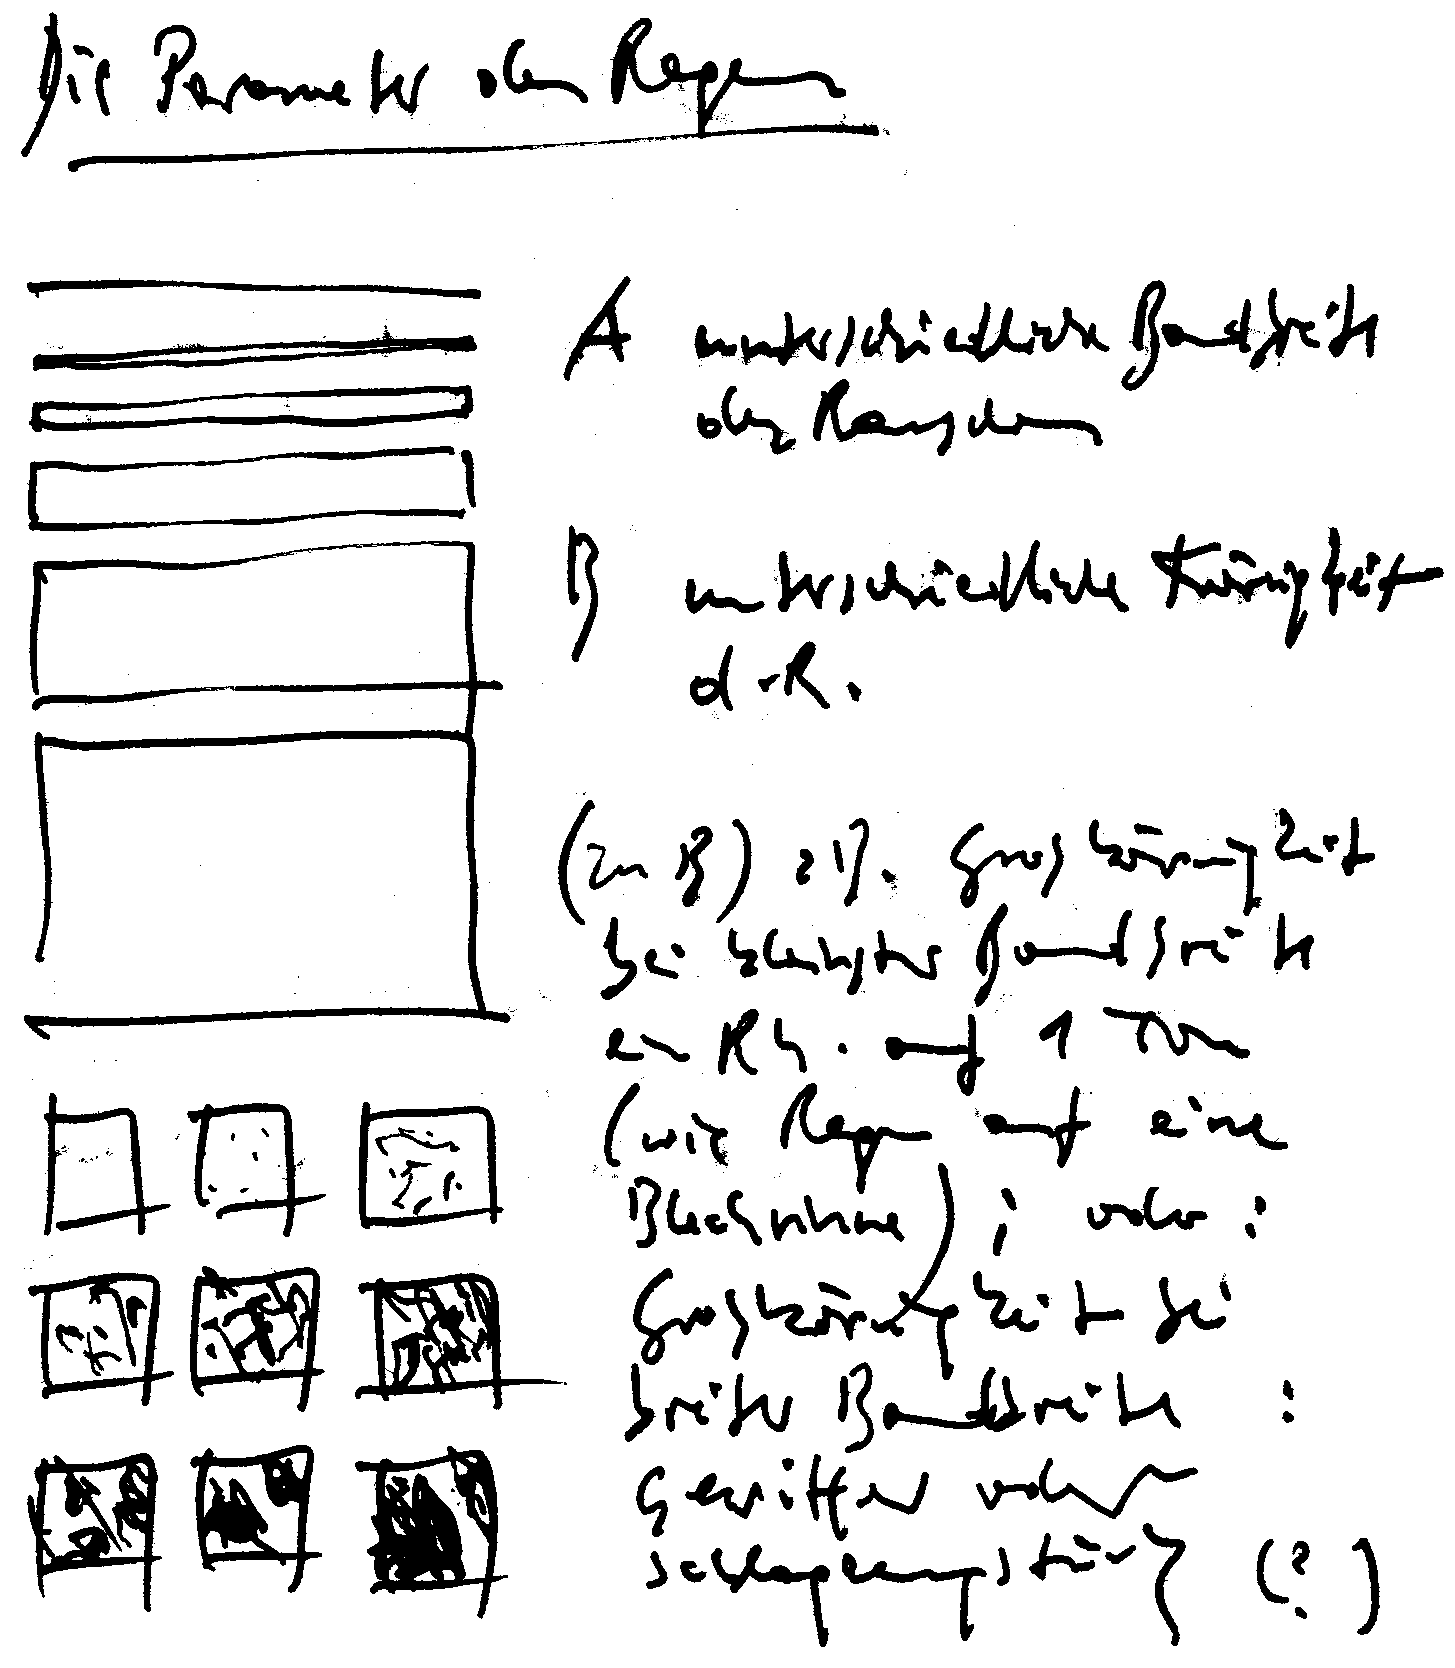 Die Parameter des Regens
A unterschiedliche Bandbreite
des Rauschens
B unterschiedliche Körnigkeit
d. R.
(zu B) zB. Grosskörnigkeit
bei kleinster Bandbreite
ein Rh. auf 1 Ton
(wie Regen auf eine
Blechrinne); oder:
Grosskörnigkeit bei
breiter Bandbreite :
Gewitter oder
(?)